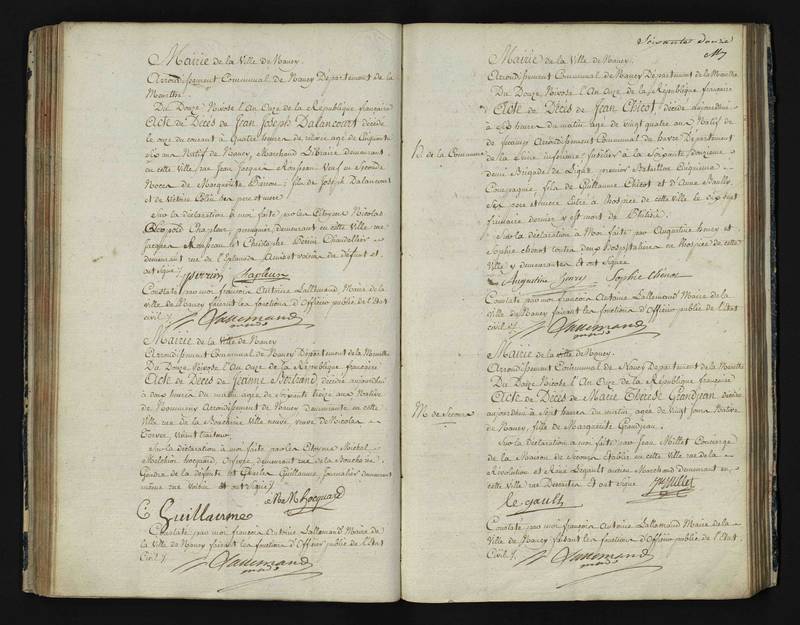 Mairie de la Ville de Nancy.
Arrondissement Communal de Nancy Département de la
Meurthe.
Du Douze Nivose l'An Onze de la République française
Acte de Décès de Jean Joseph Dalancourt décédé
le onze du courant à quatre heures de relevée agé de Cinquante
six ans Natif de Nancy, Marchand Libraire demeurant
en cette Ville rue Jean Jacques Rousseau Veuf en Seconde
Noces de Marguerite ; fils de Joseph Dalancourt
et de Victoire ses pere et mere
Sur la déclaration à moi faite par les Citoyens Nicolas
Léopold Chapleur, perruquier, demeurant en cette Ville rue
Jacques Rousseau et Christophe Perrin Chandellier
demeurant rue de l'Esplanade Amis et voisins du défunt et
ont signé
Perrin Chapleur
Constaté par moi françois Antoine Lallemand Maire de la
ville de Nancy faisant les fonctions d'Officier public de l'Etat
civil
Lallemand
Mairie de la Ville de Nancy
Arrondissement Communal de Nancy Département de la Meurthe
Du Douze Nivose l'An Onze de la République française
Acte de Décès de Jeanne Bertrand décédée aujourdhui
à heures du matin agée de Soixante treize ans Native
de Arrondissement de Nancy Demeurante en cette
Ville rue de la Boucherie Ville neuve, veuve de Nicolas
vivant traiteur,
Sur la déclaration à moi faite par les Citoyens Michel
Melchior hocquard, Orfevre demeurant rue de la Boucherie
Gendre de la défunte et Charles Guillaume, journalier demeurant
même rue Voisin et ont signé
hocquard
C. Guillaume
Constaté par moi françois Antoine Lallemand Maire de
la Ville de Nancy faisant les fonctions d'Officier public de l'Etat
Civil
Lallemand
Soixante douze
Mairie de la Ville de Nancy.
Arrondissement Communal de Nancy Département de la Meurthe
Du Douze Nivose l'An Onze de la République française
Acte de Décès de Jean Chicot décédé aujourdhui
à six heures du matin agé de vingt quatre ans Natif de
Arrondissement Communal du havre Département
H. de la Commune
de la Seine inferieure fusilier à la Soixante douzieme
demi Brigade de Ligne premier Bataillon Cinquieme
Compagnie, fils de Guillaume Chicot et d'Anne
Ses pere et mere Entré à l'hospice de cette Ville le dix sept
frimaire dernier y est mort de Phtisie.
Sur la déclaration à Moi faite par Augustine et
Sophie hospitalieres en l'hospice de cette
Ville y demeurantes et ont signé
Augustine Sophie
Constaté par moi françois Antoine Lallemand Maire de la
Ville de Nancy faisant les fonctions d'Officier public de l'Etat
civil
Lallemand
Mairie de la Ville de Nancy.
Arrondissement Communal de Nancy Département de la Meurthe
Du Douze Nivose l'An Onze de la République française
Acte de Décès de Marie Thérèse Grandjean décédée
M. de Secours
aujourdhui à Sept heures du matin, agée de Vingt Jours Native
de Nancy, fille de Marguerite Grandjean.
Sur la déclaration à moi faite par Jean Millet Concierge
de la Maison de Secours établie en cette Ville rue de la
Révolution et René Legault ancien Marchand demeurant en
cette ville rue et ont signé
Millet
legault
Constaté par moi françois Antoine Lallemand Maire de la
Ville de Nancy faisant les fonctions d'Officier public de l'Etat
Civil
Lallemand